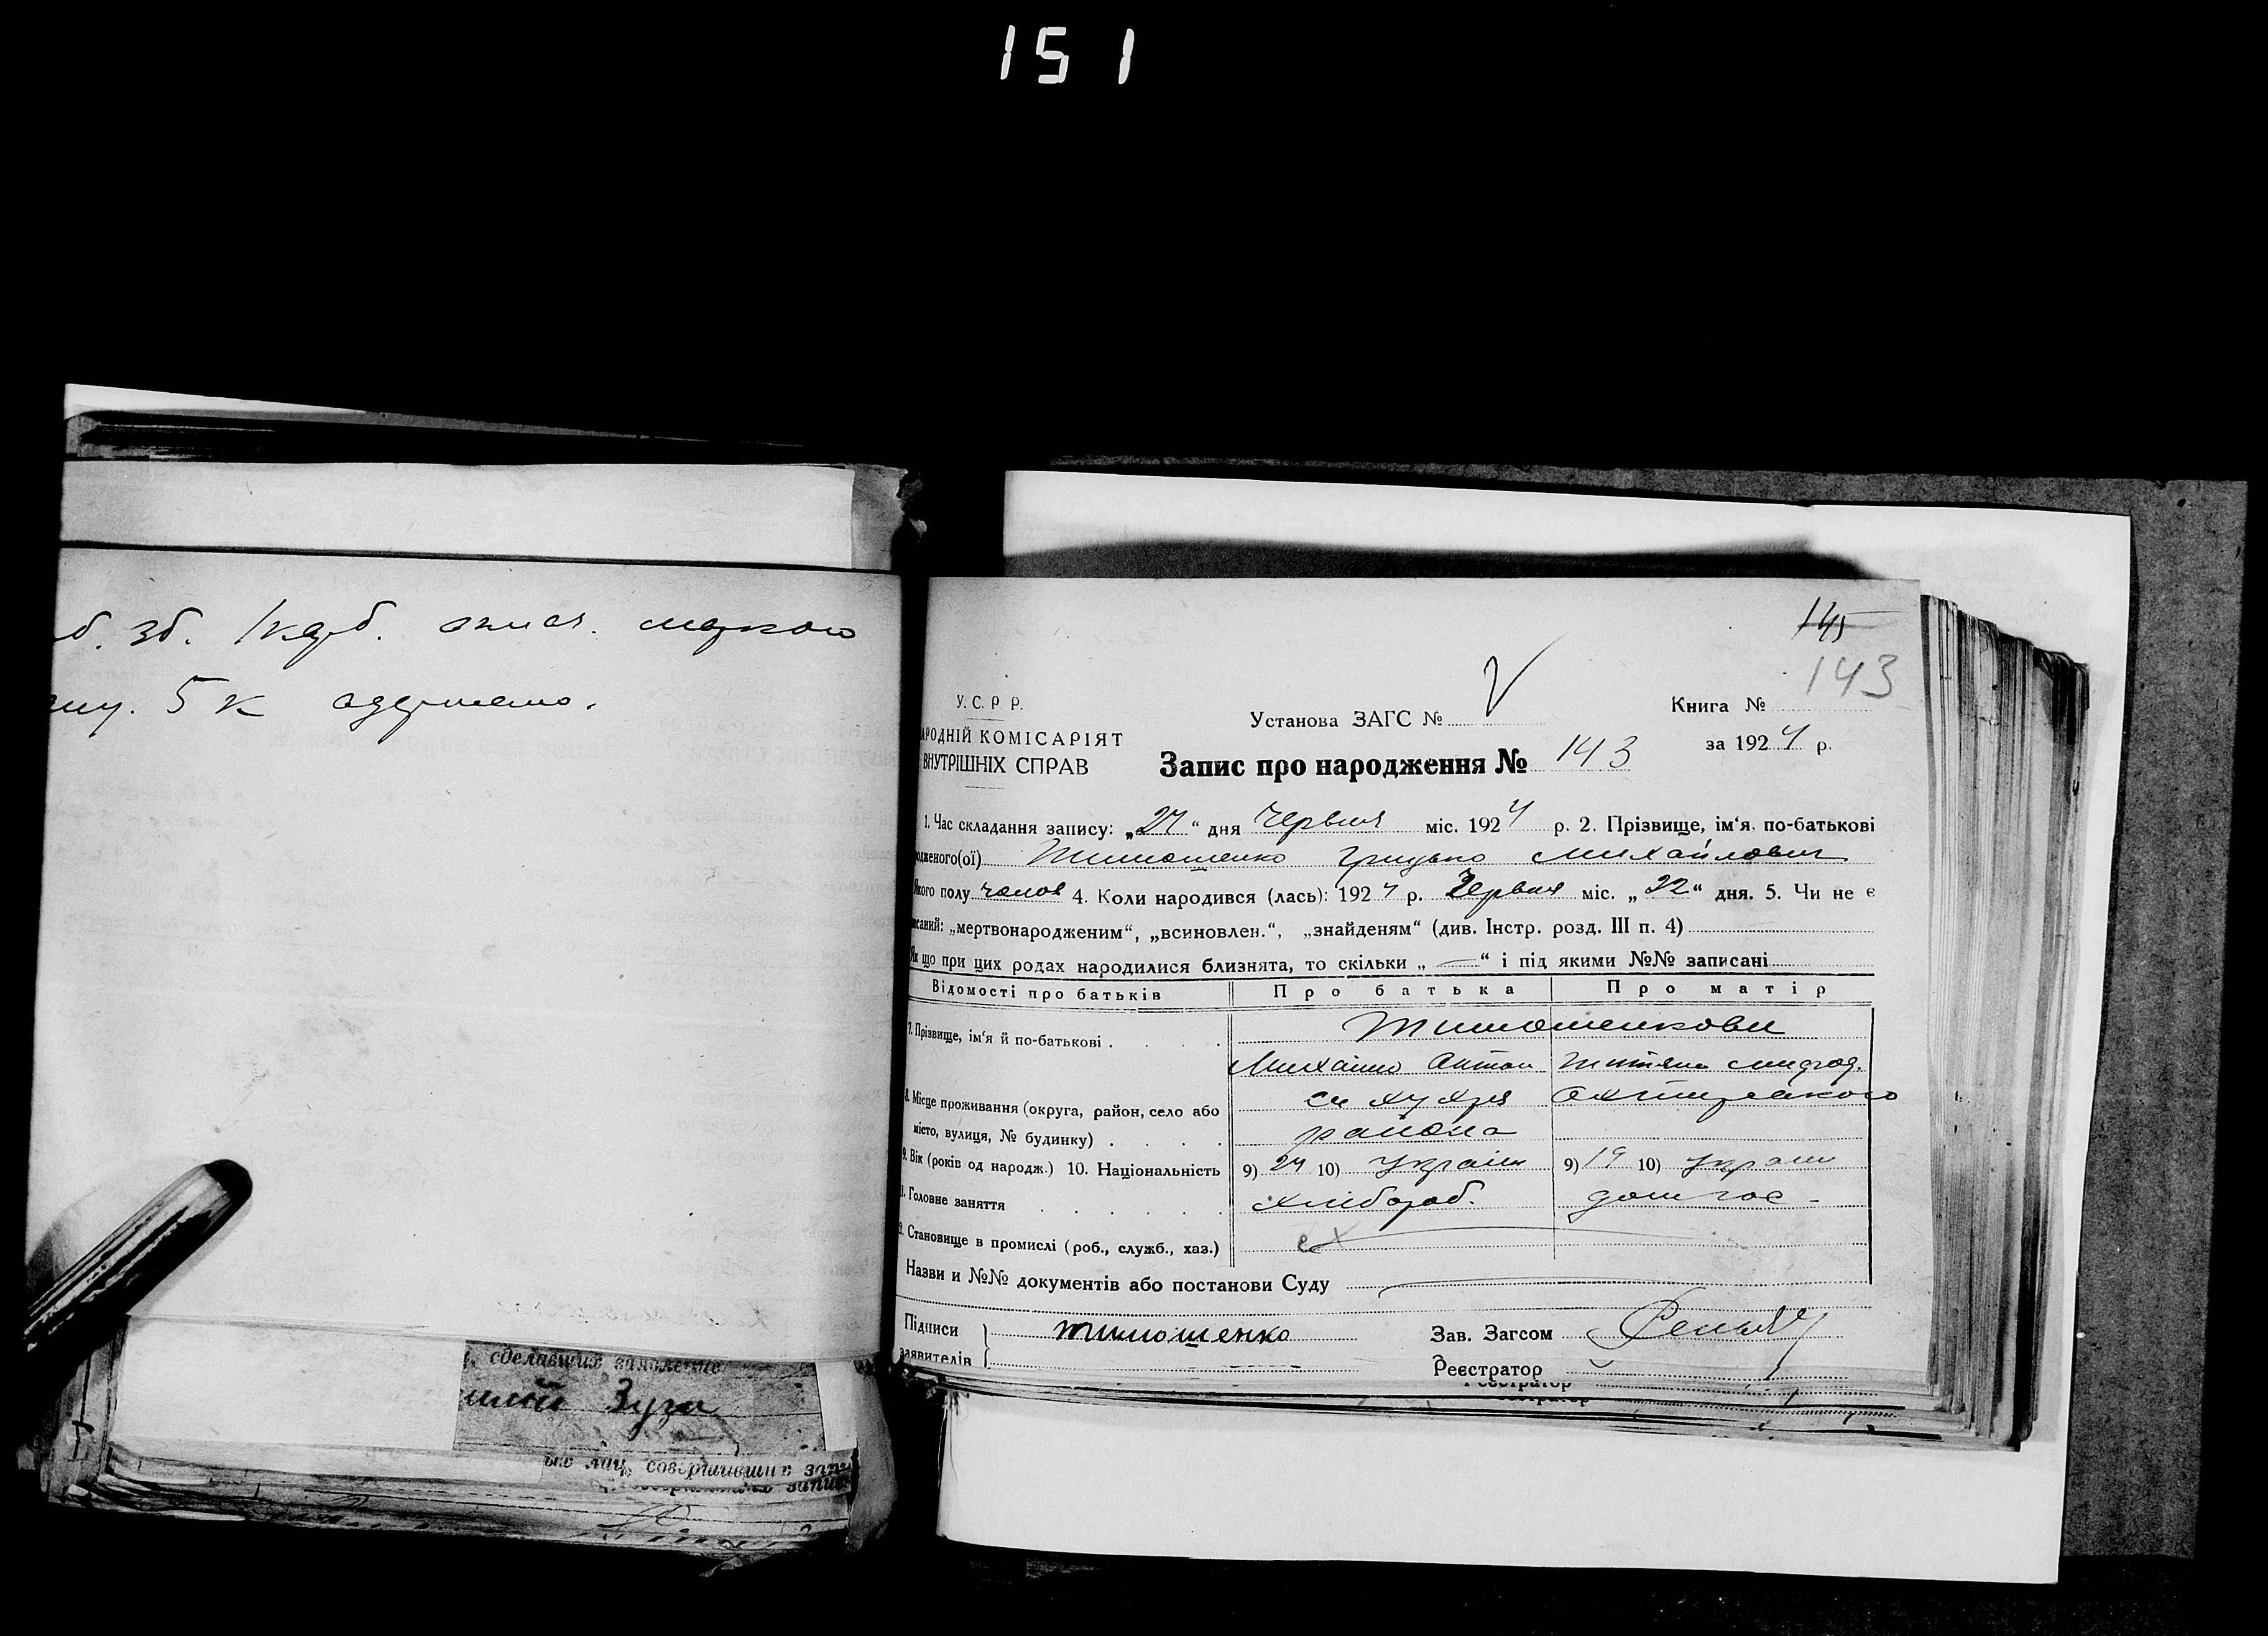 151
зб. 1 карб.
5 к одержано.
145
143
У.С.Р Р.
АРОДНІЙ КОМІСАРІЯТ
ВНУТРІШНІХ СПРАВ
Установа ЗАГС № V
Книга №
за 1924 р.
Запис про народження № 143
1. Час складання запису: „24“ дня Червня міс. 1924 р. 2. Прізвище, ім‘я, по-батькові
одженого(ої) Тимошенко Грицько Михайлович
Якого полу чолов 4. Коли народився (лась): 1924 р. Червня міс. „22“ дня. 5. Чи не є
исаний: „мертвонародженим“, „всиновлен.“, „знайденям“ (див. Інстр. розд. III п. 4)
Як що при цих родах народилися близнята, то скільки „—“ і під якими №№ записані
Відомості про батьків Про батька Про матір
7. Прізвище, ім‘я й по-батькові . . . . Тимошенкови
Михайло Антон Титяна
8. Місце проживання (округа, район, село або
місто, вулиця, № будинку) . . . . Охтирського
района
9. Вік (років од народж.) 10. Національність 9) 24 10) Україн 9) 19 10) Україн
11. Головне заняття . . . . . . хлібороб. дом гос -
2. Становище в промислі (роб., служб., хаз.)
Назви и №№ документів або постанови Суду
Підписи
заявителів
тимошенко
Зав. Загсом
Реєстратор
Реєстратор
, сделавших заявление
Зуза
ых лиц, совершивших зап